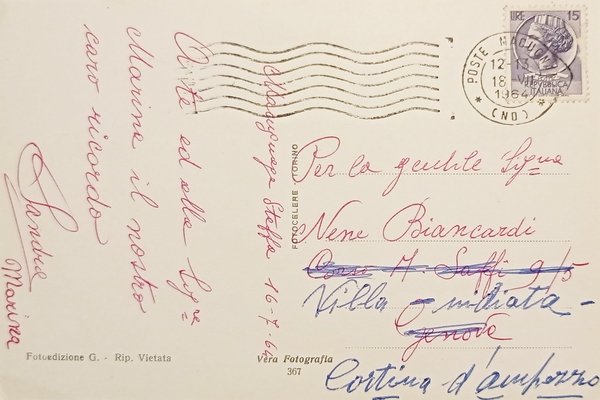 Macugnaga Staffa 16-7-64
A Lei ed alla Sig.ra
Marina il nostro
caro ricordo
Sandra
Marina
Fotoedizione G. - Rip. Vietata
Vera Fotografia
367
FOTOCELERE TORINO
LIRE 15
REPUBBLICA
ITALIANA
POSTE MACUGNAGA
12-13
18 VII
1964
* (NO) *
Per la gentile Sig.na
Nene Biancardi
Corso A. Saffi 9/5
Villa - midiata -
Genova
Cortina d'ampezzo